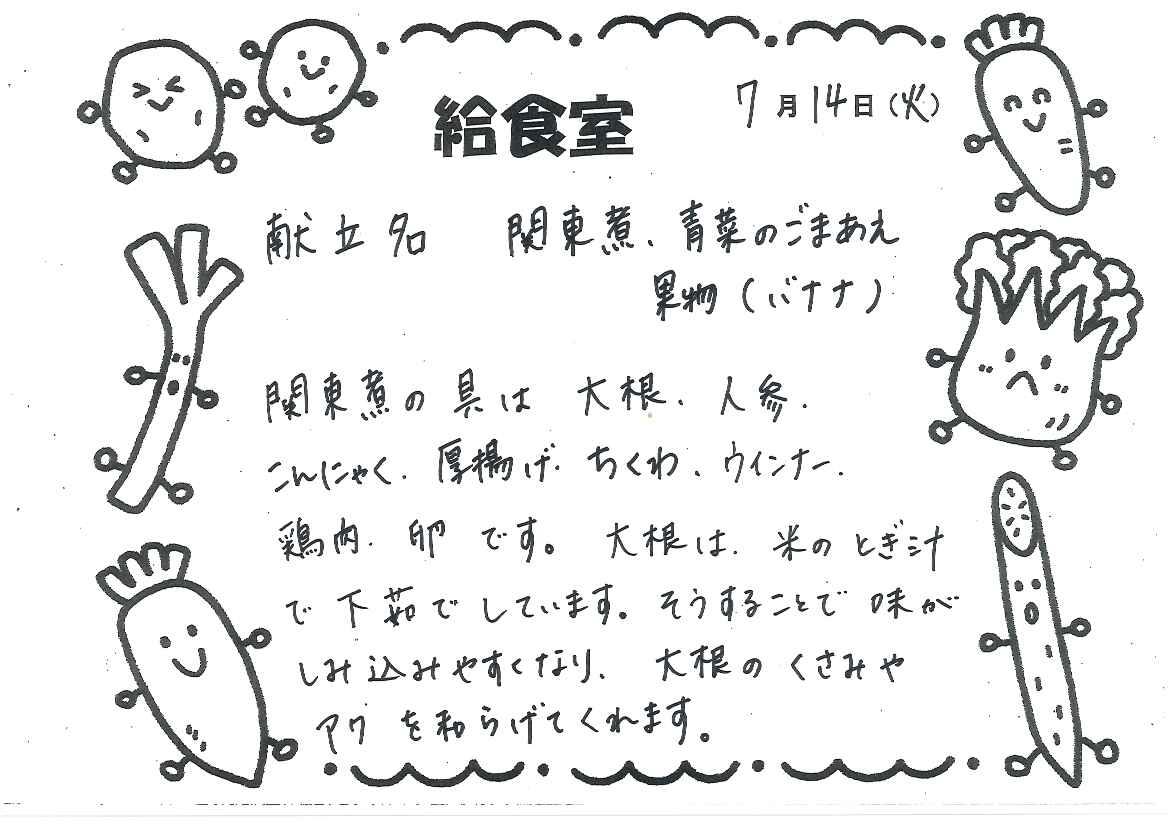 給食室
7月14日(火)
献立名 関東煮、青菜のごまあえ
果物(バナナ)
関東煮の具は 大根、人参、
こんにゃく、厚揚げ、ちくわ、ウインナー、
鶏肉、卵です。 大根は、米のとぎ汁
で下茹でしています。そうすることで味が
しみ込みやすくなり、 大根のくさみや
アクを和らげてくれます。